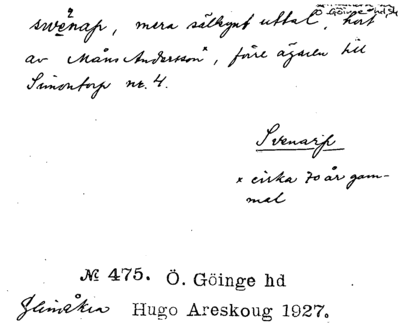 Ö Göinge hd, Sk
swe̥nap, mera sällsynt uttal, hört
av Måns Andersson ˣ, förre ägaren till
Simontorp nr. 4.
Svenarp
x cirka 70 år gam-
mal
№ 475. Ö. Göinge hd
Glimåkra Hugo Areskoug 1927.